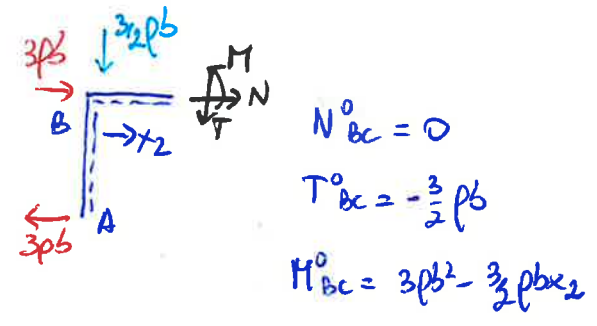 3/2pb
3pb
M
N
B
T
x2
A
3pb
N⁰BC = 0
T⁰BC = - 3/2 pb
M⁰BC = 3pb² - 3/2 pbx2